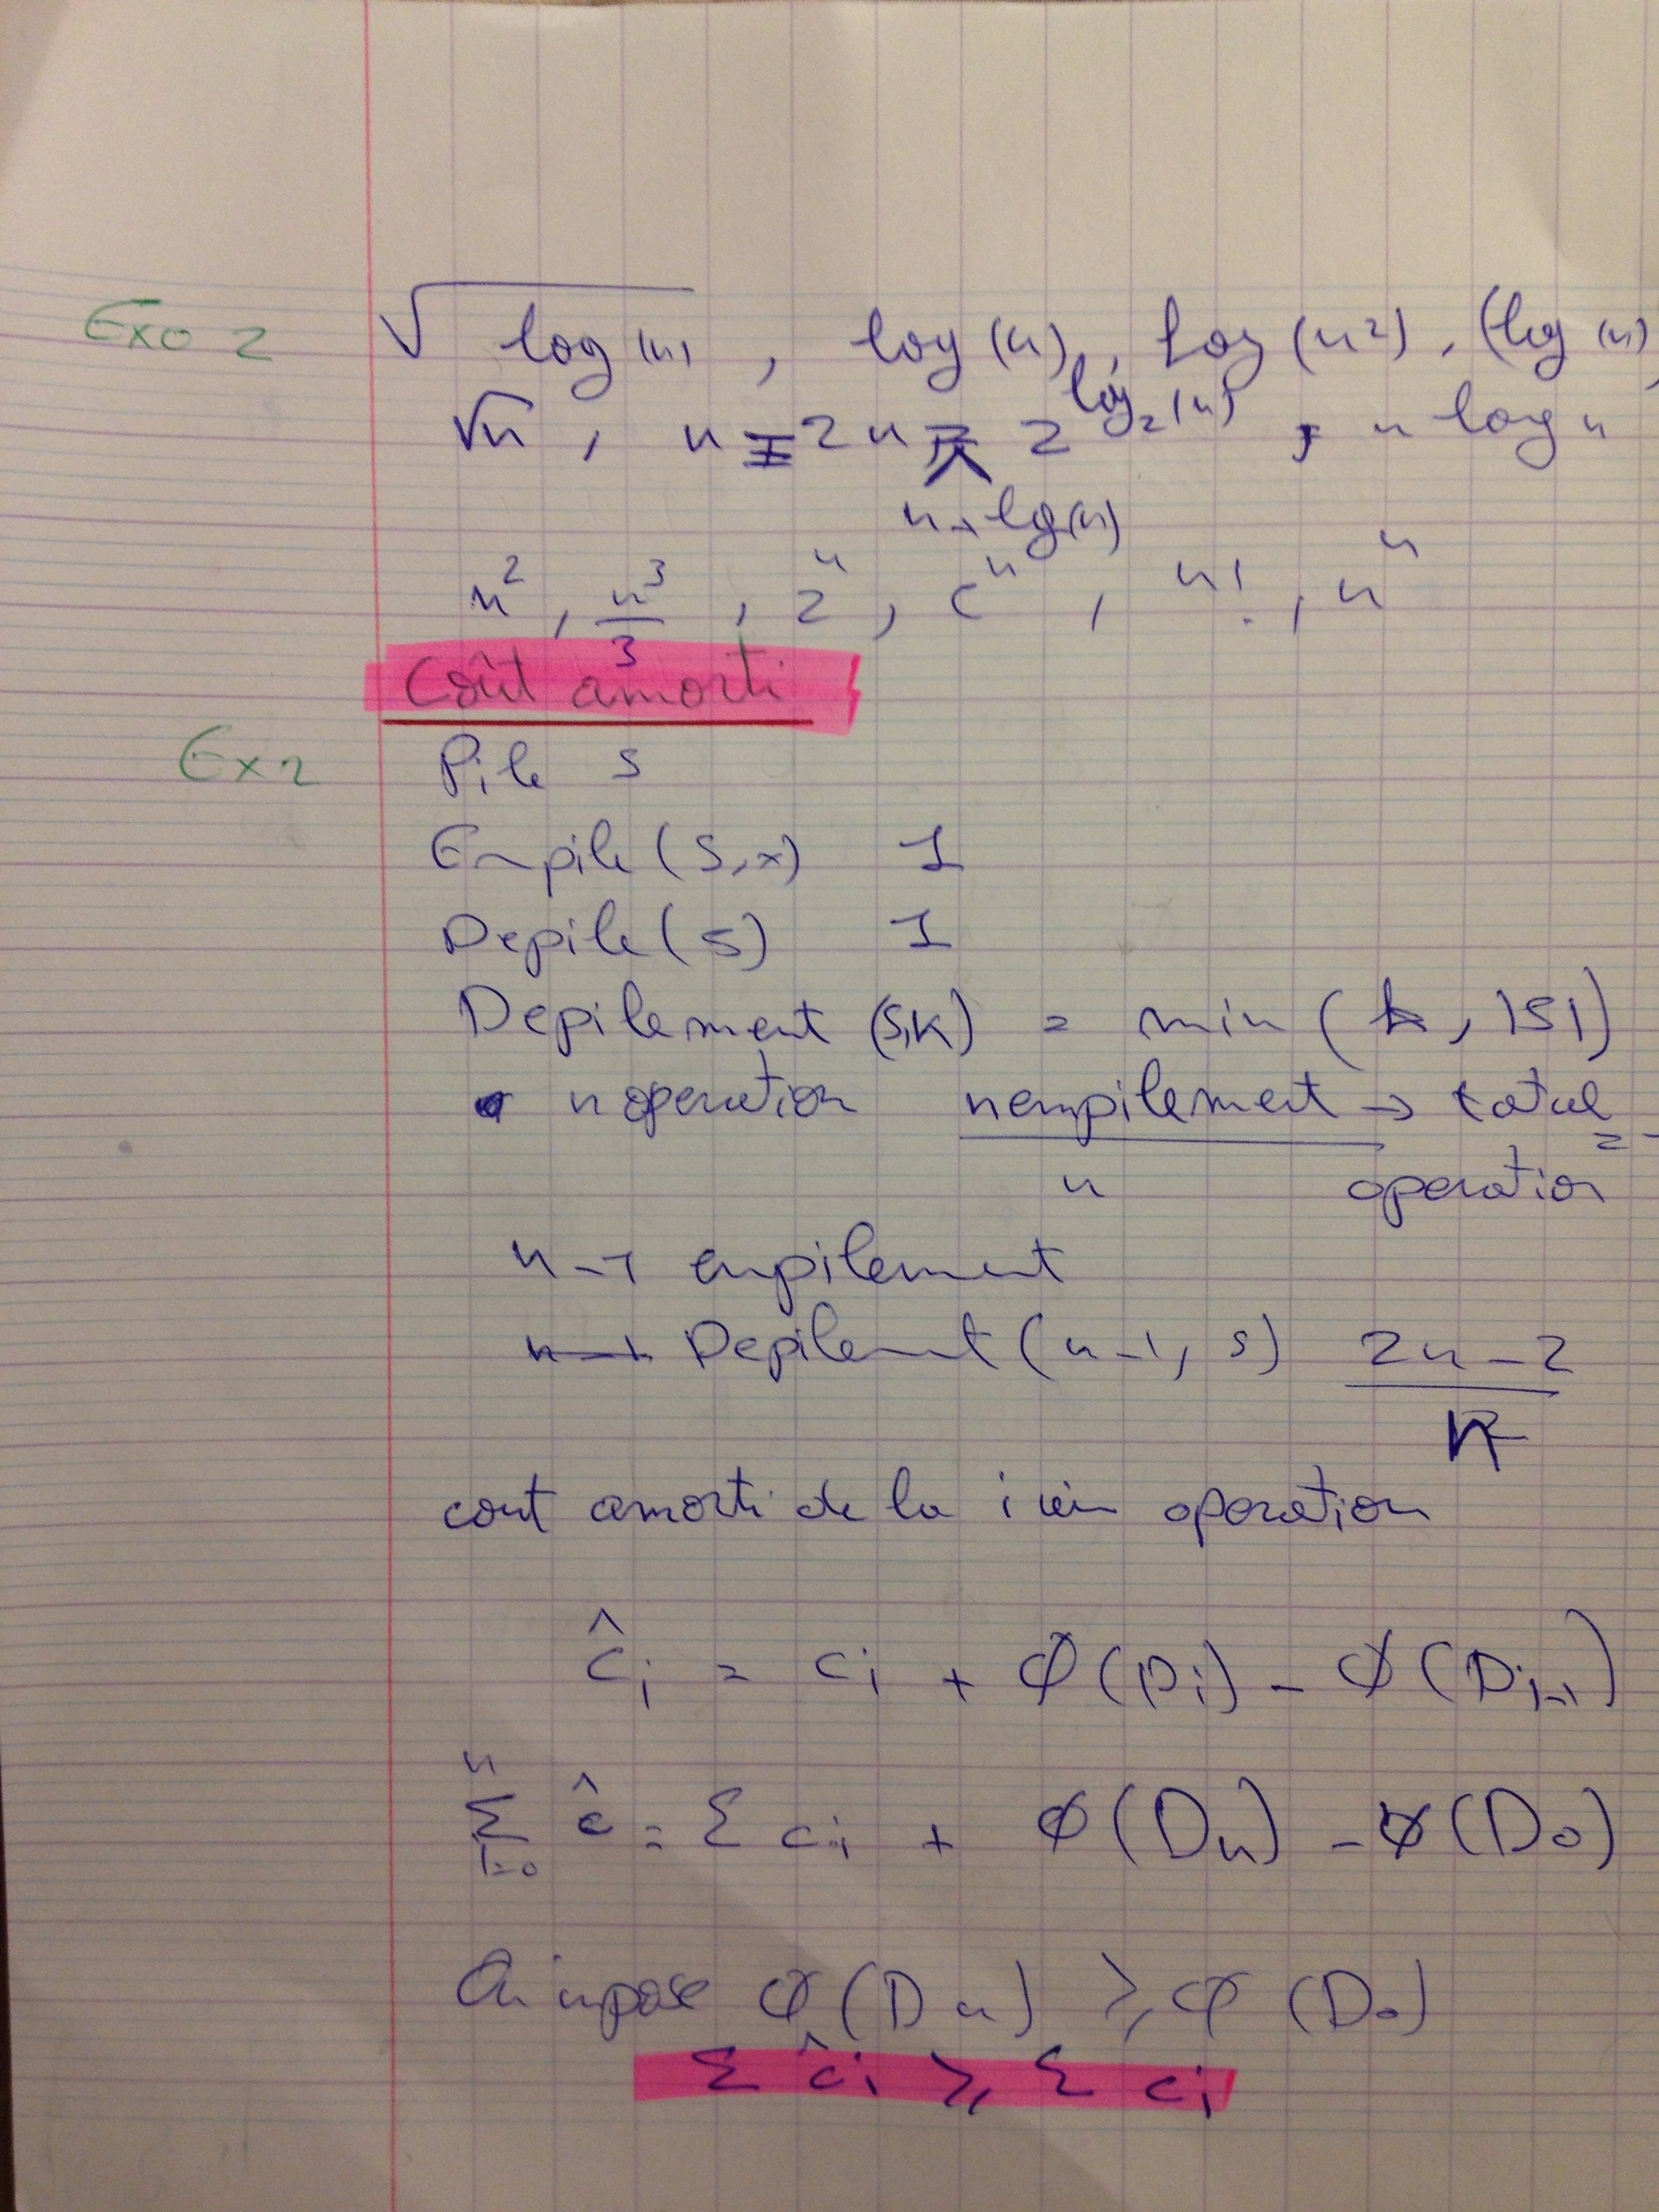 Exo 2 √log(n) , log(n) , log(n²) , (log(n)
√n , n = 2n = 2^log₂(n) , n log n
n + log(n)
n² , n³/3 , 2ⁿ , cⁿ , n! , nⁿ
Coût amorti
Ex 1 Pile S
Empile (S,x) 1
Depile (S) 1
Depilement (S,K) = min (k, |S|)
n operation nempilement → total =
n operation
n-1 empilement
Depilement (n-1, S) 2n-2/n
cout amorti de la i ièm operation
ĉi = ci + φ(Di) - φ(Di-1)
n
Σ ĉ = Σ ci + φ(Dn) - φ(D0)
i=0
On impose φ(Dn) ⩾ φ(D0)
Σ ĉi ⩾ Σ ci